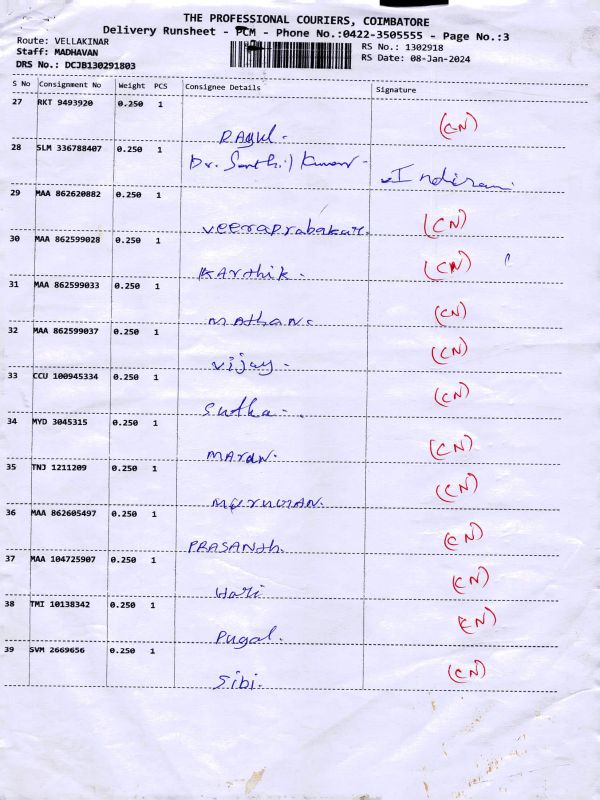 THE PROFESSIONAL COURIERS, COIMBATORE
Delivery Runsheet - PCM - Phone No.:0422-3505555 - Page No.:3
Route: VELLAKINAR RS No.: 1302918
Staff: MADHAVAN RS Date: 08-Jan-2024
DRS No.: DCJB130291803
S No Consignment No Weight PCS Consignee Details Signature
27 RKT 9493920 0.250 1 Ragul. (CN)
28 SLM 336788407 0.250 1 Dr. Senthil Kumar - Indirani
29 MAA 862620882 0.250 1 Veeraprabakar. (CN)
30 MAA 862599028 0.250 1 Karthik. (CN)
31 MAA 862599033 0.250 1 Mathan. (CN)
32 MAA 862599037 0.250 1 Vijay. (CN)
33 CCU 100945334 0.250 1 Sutha. (CN)
34 MYD 3045315 0.250 1 Maran. (CN)
35 TNJ 1211209 0.250 1 Murugan. (CN)
36 MAA 862605497 0.250 1 PRASANth. (CN)
37 MAA 104725907 0.250 1 Hari (CN)
38 TMI 10138342 0.250 1 Pugal. (CN)
39 SVM 2669656 0.250 1 Sibi. (CN)